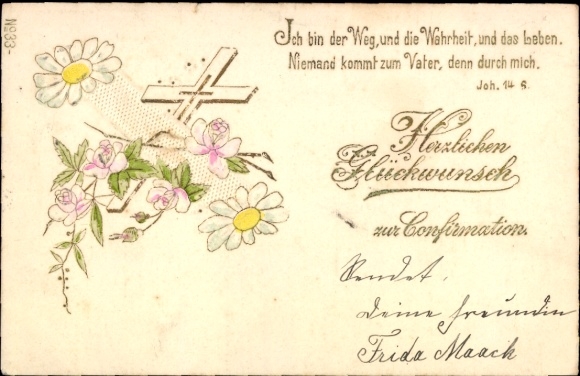 No 33-
Ich bin der Weg, und die Wahrheit, und das Leben.
Niemand kommt zum Vater, denn durch mich.
Joh. 14 6.
Herzlichen
Glückwunsch
zur Confirmation.
Sendet.
Deine Freundin
Frida Maack